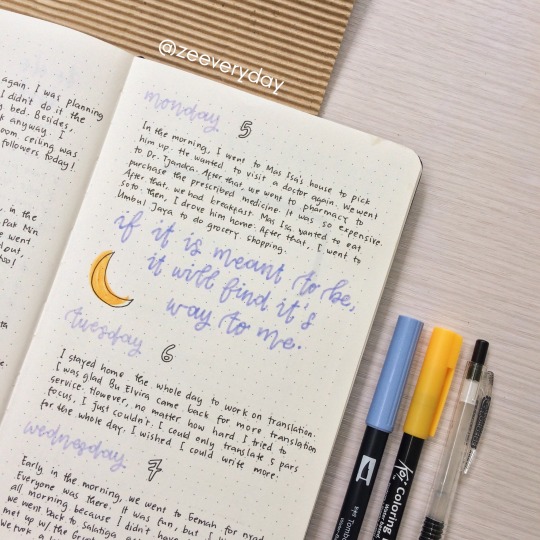 @zeeveryday
again. I was planning
I didn't do it the
bed. Besides,
anyway. I
room ceiling was
followers today!
in the
Pak
went
monday 5
In the morning, I went to Mas Isa's house to pick
him up. He wanted to visit a doctor again. We went
to Dr. Tjandra. After that, we went to pharmacy to
purchase the prescribed medicine. It was so expensive.
After that, we had breakfast. Mas Isa wanted to eat
soto. Then, I drove him home. After that, I went to
Umbul Jaya to do grocery shopping.
if it is meant to be,
it will find it's
way to me.
tuesday 6
I stayed home the whole day to work on translation.
I was glad Bu Elvira came back for more translation
service. However, no matter how hard I tried to
focus, I just couldn't. I could only translate 5 pars
for the whole day. I wished I could write more.
wednesday 7
Early in the morning, we went to Gemah for nyad
Everyone was there. It was fun, but I
all morning because I didn't have
we went back to Salatiga
met up w/ the
we took a
Tombow
Koi Coloring